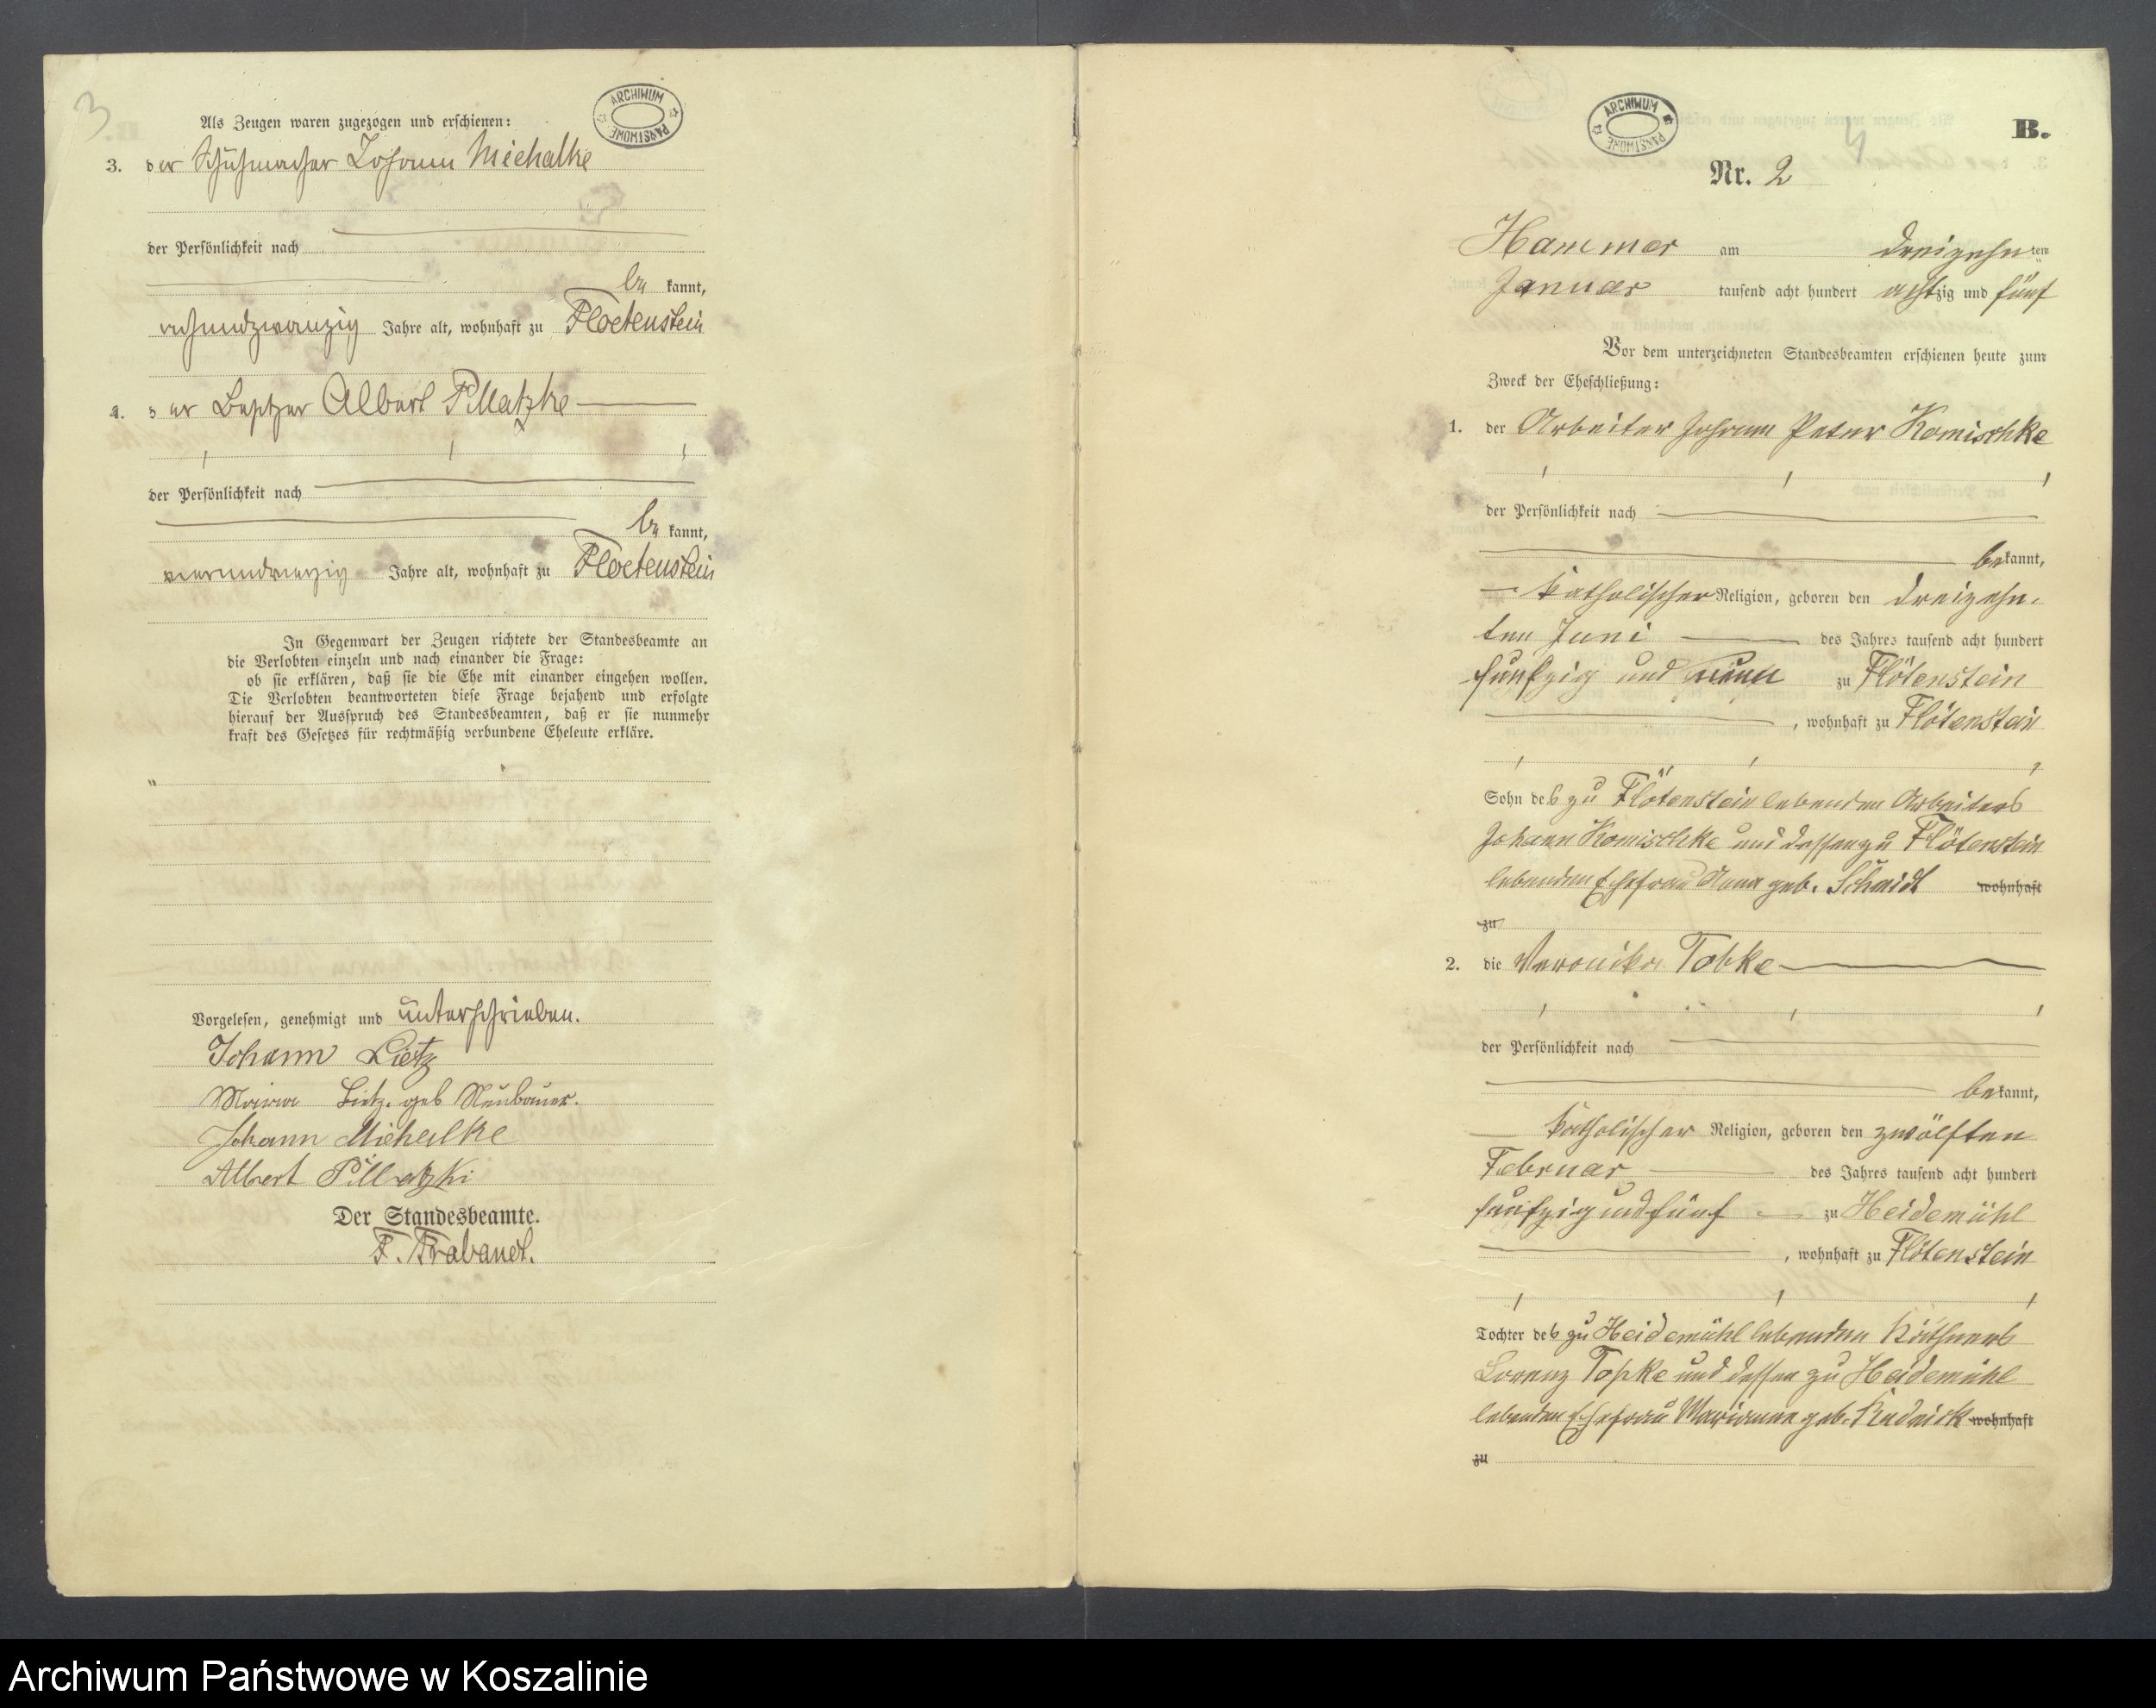 3
ARCHIWUM PAŃSTWOWE
Als Zeugen waren zugezogen und erschienen:
3. der Schuhmacher Johann Michalke
der Persönlichkeit nach
be kannt,
achundzwanzig Jahre alt, wohnhaft zu Floetenstein
4. der Besitzer Albert Pillatzke
der Persönlichkeit nach
be kannt,
vierundvierzig Jahre alt, wohnhaft zu Floetenstein
In Gegenwart der Zeugen richtete der Standesbeamte an
die Verlobten einzeln und nach einander die Frage:
ob sie erklären, daß sie die Ehe mit einander eingehen wollen.
Die Verlobten beantworteten diese Frage bejahend und erfolgte
hierauf der Ausspruch des Standesbeamten, daß er sie nunmehr
kraft des Gesetzes für rechtmäßig verbundene Eheleute erkläre.
Vorgelesen, genehmigt und unterschrieben.
Johann Lietz
Maria Lietz. geb Neubauer.
Johann Michalke
Albert Pillatzki
Der Standesbeamte.
F.
ARCHIWUM PAŃSTWOWE
4
B.
Nr. 2
Hammer am dreizehn ten
Januar tausend acht hundert achtzig und fünf
Vor dem unterzeichneten Standesbeamten erschienen heute zum
Zweck der Eheschließung:
1. der Arbeiter Johann Peter Komischke
der Persönlichkeit nach
bekannt,
katholischer Religion, geboren den dreizehn-
ten Juni des Jahres tausend acht hundert
funfzig und neun zu Flötenstein
, wohnhaft zu Flötenstein
Sohn des zu Flötenstein lebenden Arbeiters
Johann Komischke und dessen zu Flötenstein
lebenden Ehefrau Anna geb. Schmidt wohnhaft
zu
2. die Veronika Tobke
der Persönlichkeit nach
bekannt,
katholischer Religion, geboren den zwölften
Februar des Jahres tausend acht hundert
funfzig und fünf zu Heidemühl
, wohnhaft zu Flötenstein
Tochter des zu Heidemühl lebenden Käthners
Lorenz Topke und dessen zu Heidemühl
lebenden Ehefrau Marianna geb. Rudnick wohnhaft
zu
Archiwum Państwowe w Koszalinie